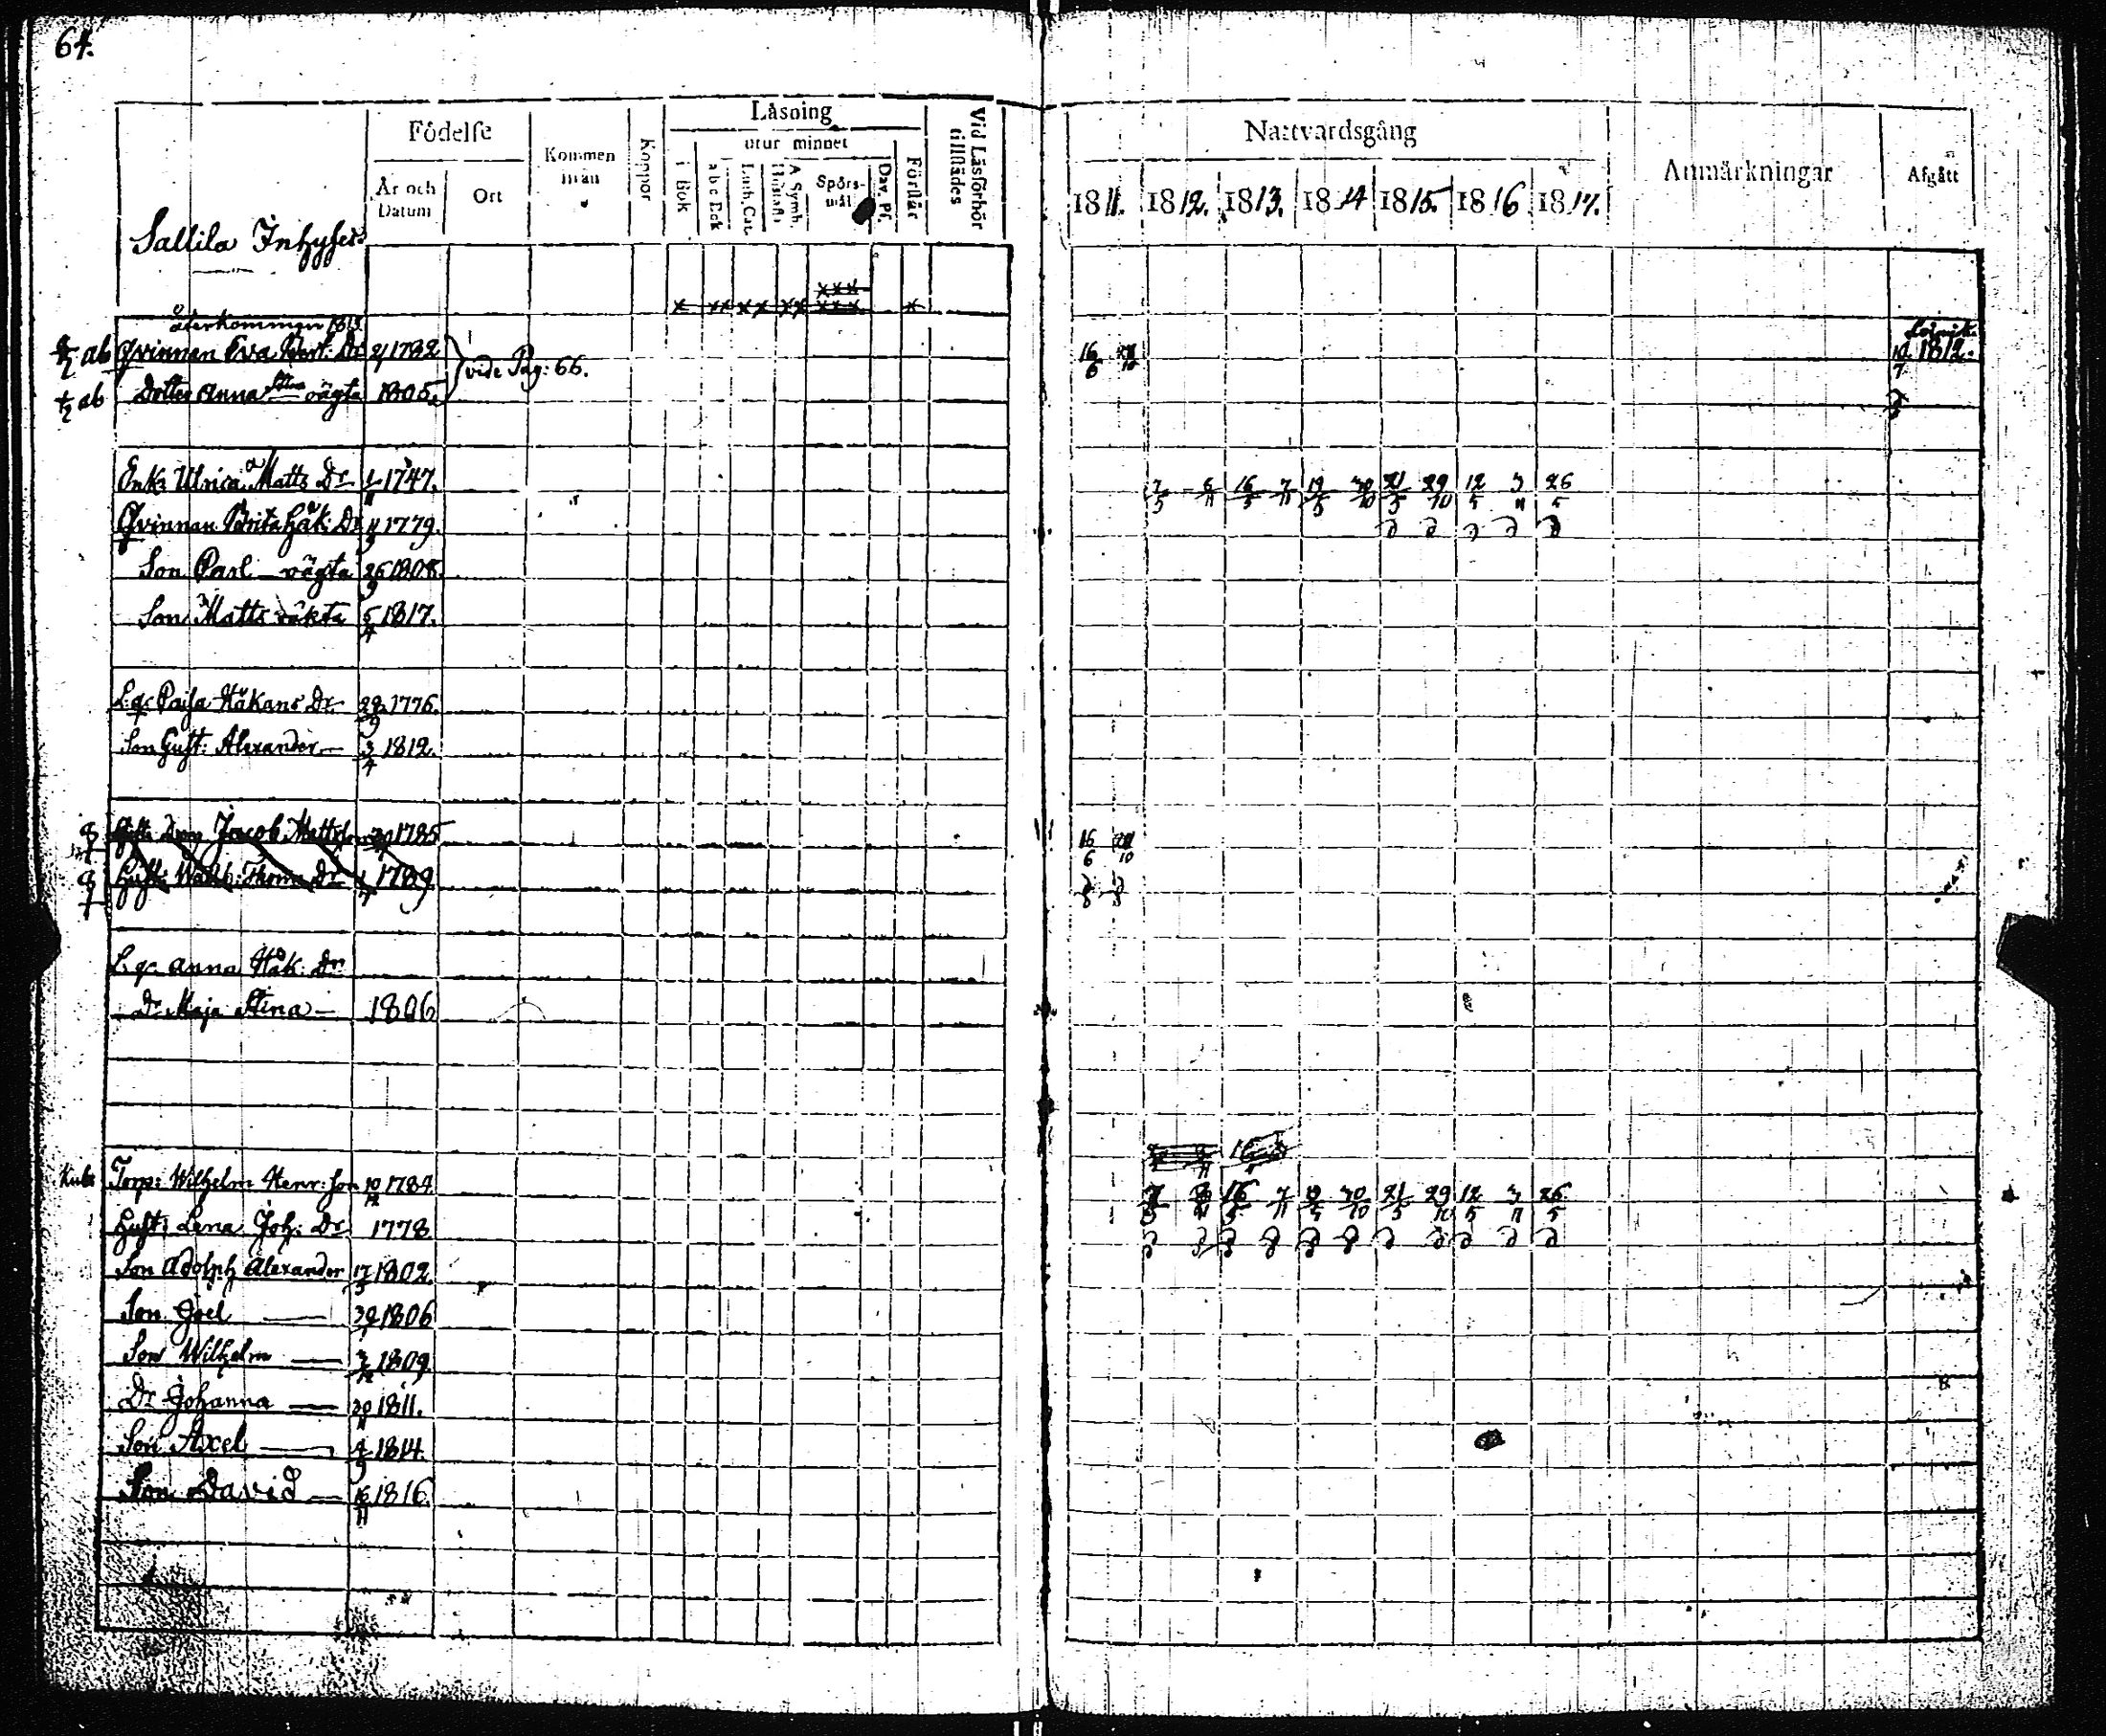 64.
Födelse
Kommen ifrån
Koppor
Läsning
utur minnet
Vid Läsförhör tillstädes
År och Datum
Ort
i Bok
a b c Bok
Luth. Cat.
A. Symb. Hustafla
Spörsmål
Dav. Ps.
Förstår
Nattvardsgång
1811. 1812. 1813. 1814 1815. 1816. 1817.
Anmärkningar
Afgått
Sallila Inhyses
x xx xx xx xxx xxx x
återkommen 1813.
ab Qvinnan Eva Dr 1782 vide Pag: 66. 16/6 1812.
ab Dotter Anna Stina oägta 1805.
Enk: Ulrica Matts Dr 1/11 1747. 7/5 8/11 16/5 7/11 19/5 30/10 21/5 29/10 12/5 3/11 26/5
Qvinnan Brita Håk: Dr 1779.
Son Carl oägta 26/9 1808.
Son Matts oäkta 5/4 1817.
L: q: Caisa Håkans Dr 29/9 1776.
Son Gust: Alexander 3/4 1812.
Jacob Mattsson 1785 16/6
Hust: Walb: Thom: Dr 1789
L: q: Anna Håk: Dr
Dr Maja Stina 1806
16
Torp: Wilhelm Henr: son 10/12 1784 7/5 8/11 16/5 7/11 19/5 30/10 21/5 29/10 12/5 3/11 26/5
Hust: Lena Joh: Dr 1778
Son Adolph Alexander 17/3 1802.
Son Joel 1806
Son Wilhelm 1809
Dr Johanna 1811.
Son Axel 1814.
Son David 16/11 1816.